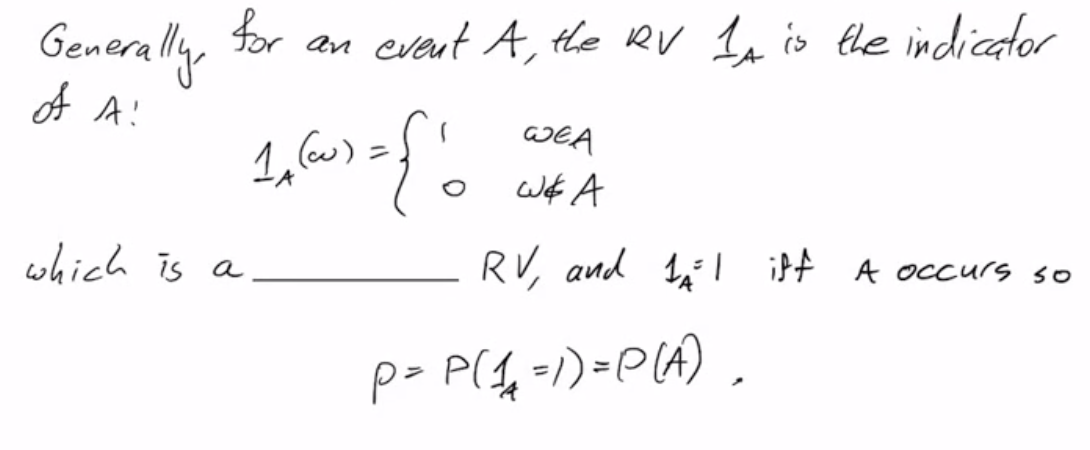 Generally, for an event A, the RV 1_A is the indicator
of A:
1_A(ω) = { 1 ω∈A
0 ω∉A
which is a ________ RV, and 1_A=1 iff A occurs so
p = P(1_A=1) = P(A).